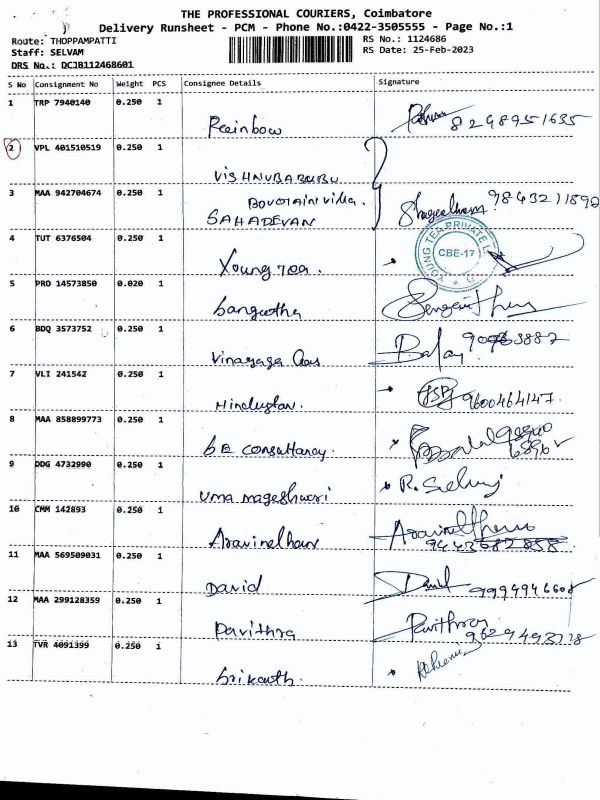 THE PROFESSIONAL COURIERS, Coimbatore
Delivery Runsheet - PCM - Phone No.:0422-3505555 - Page No.:1
Route: THOPPAMPATTI
RS No.: 1124686
Staff: SELVAM
RS Date: 25-Feb-2023
DRS No.: DCJB112468601
S No Consignment No Weight PCS Consignee Details Signature
1 TRP 7940140 0.250 1
Rainbow 8298951635
2 VPL 401510519 0.250 1
VISHNUBABUBU
3 MAA 942704674 0.250 1
SAHADEVAN
4 TUT 6376504 0.250 1
Young Tea.
YOUNG TEA PRIVATE
CBE-17
5 PRO 14573850 0.020 1
Sangeetha
6 BDQ 3573752 0.250 1
Vinayaga Gas
7 VLI 241542 0.250 1
Hindustan. 9600464147.
8 MAA 858899773 0.250 1
BE consultancy.
9 DDG 4732990 0.250 1
Uma mageshwari R. Selvaj
10 CMM 142893 0.250 1
Aravindhan
9443682858
11 MAA 569509031 0.250 1
David 9994946608
12 MAA 299128359 0.250 1
Pavithra Pavithra
13 TVR 4091399 0.250 1
Srikanth.